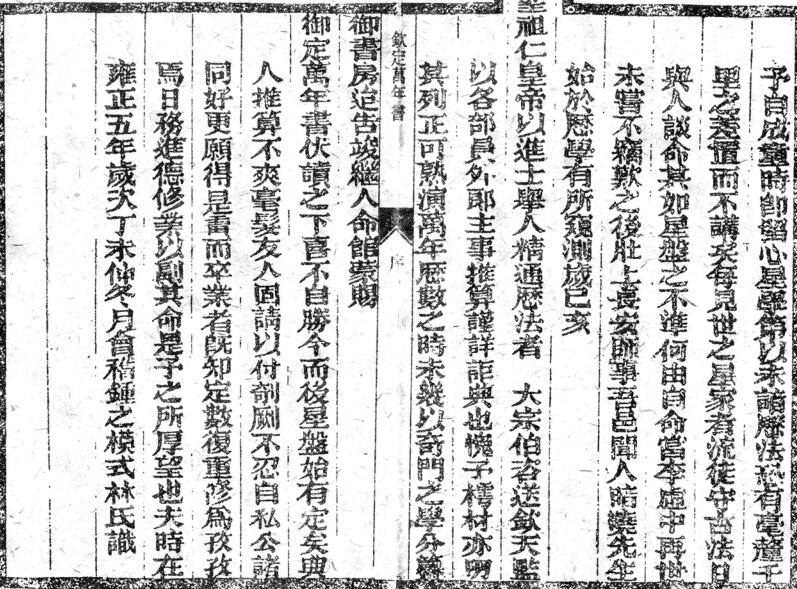 予自成童時卽留心星學第以未諳曆法恐有毫釐千
里之差置而不講矣每見世之星家有流徒守古法日
與人談命其如星盤之不準何由自命當李虛中再世
未嘗不竊歎之後壯上長安師事吾邑聞人時先生
始於曆學有所窺測歲己亥
聖祖仁皇帝以進士舉人精通曆法者 大宗伯咨送欽天監
以各部員外郎主事推算謹詳詎典也愧予樗材亦明
其列正可熟演萬年曆數之時未幾以奇門之學分
欽定萬年書
序
御書房迨吿竣繼入命館蒙賜
御定萬年書伏讀之下喜不自勝今而後星盤始有定矣與
人推算不爽毫髮友人固請以付剞劂不忍自私公諸
同好更願得是書而卒業者旣知定數復重修爲孜孜
焉日務進德修業以副其命是予之所厚望也夫時在
雍正五年歲次丁未仲冬月會稽鍾之模式林氏識